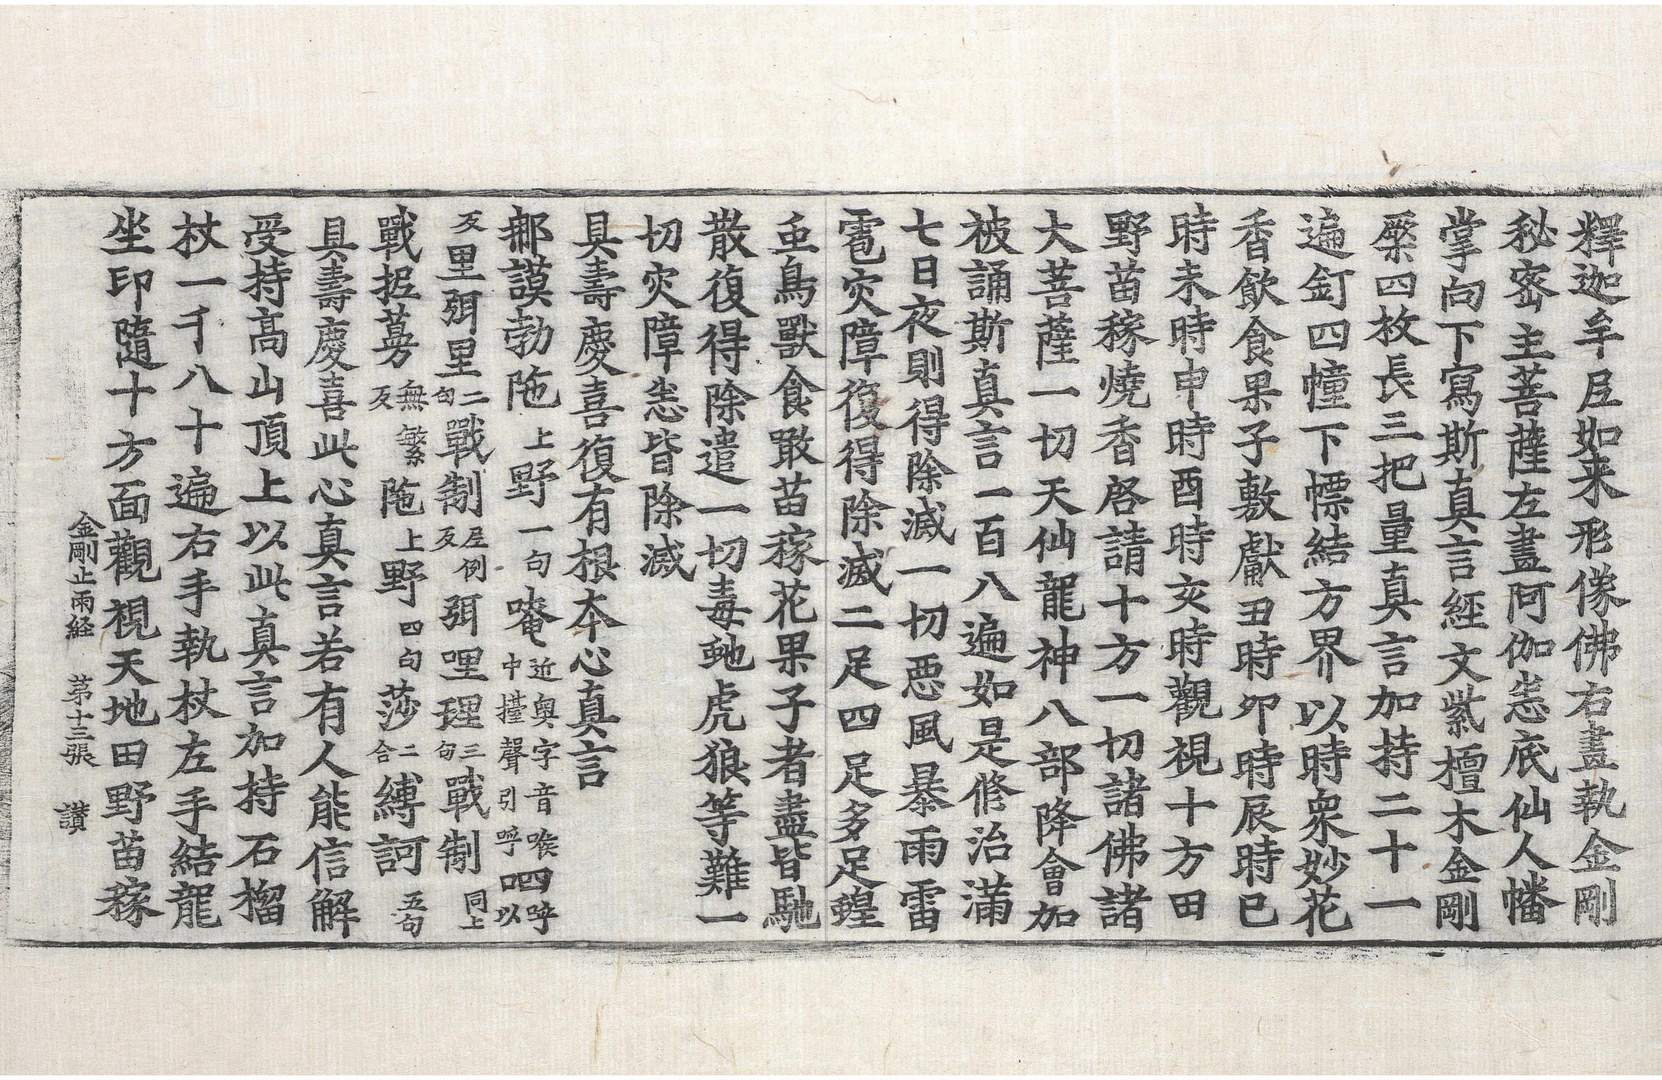 釋迦牟尼如来形像佛右畫執金剛
秘密主菩薩左畫阿伽悉底仙人幡
掌向下寫斯真言經文紫檀木金剛
橜四枚長三把量真言加持二十一
遍釘四幢下幖結方界以時衆妙花
香飲食果子敷獻丑時夘時辰時巳
時未時申時酉時亥時觀視十方田
野苗稼燒香啓請十方一切諸佛諸
大菩薩一切天仙龍神八部降會加
被誦斯真言一百八遍如是修治滿
七日夜則得除滅一切惡風暴雨雷
雹灾障復得除滅二足四足多足蝗
䖝鳥獸食噉苗稼花果子者盡皆馳
散復得除遣一切毒虵虎狼等難一
切灾障悉皆除滅
具壽慶喜復有根本心真言
那謨勃陁上野一句唵近奥字音喉中擡聲引呼四呼口以
反里弭里二句戰制居例反弭哩理三句戰制同上
戰捉蒡無繁反陁上野四句莎二合縛訶五句
具壽慶喜此心真言若有人能信解
受持高山頂上以此真言加持石榴
杖一千八十遍右手執杖左手結龍
坐印隨十方面觀視天地田野苗稼
金剛止雨経　第十三張　讃